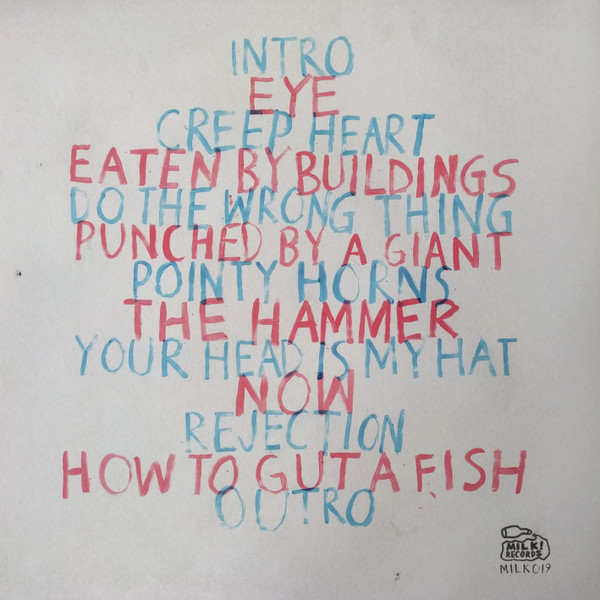 INTRO
EYE
CREEP HEART
EATEN BY BUILDINGS
DO THE WRONG THING
PUNCHED BY A GIANT
POINTY HORNS
THE HAMMER
YOUR HEAD IS MY HAT
NOW
REJECTION
HOW TO GUT A FISH
OUTRO
MILK!
RECORDS
MILK019